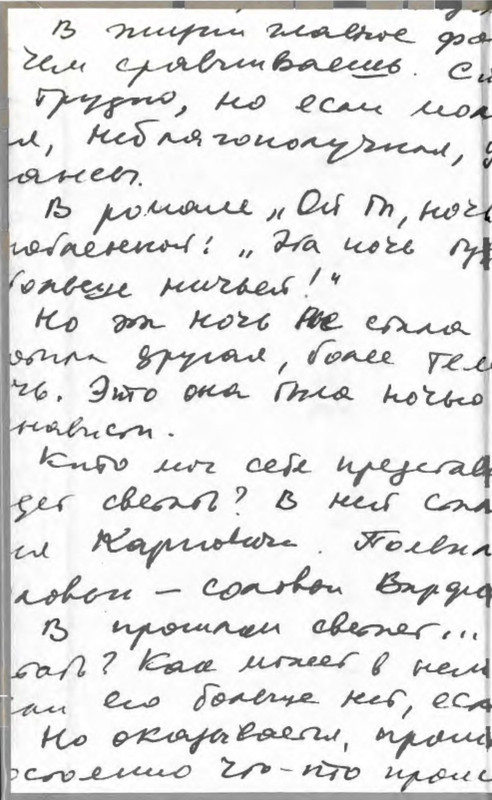 В жизни главное фо
чем сравниваешь. Си
трудно, но если мол
я, неблагополучная, у
ансы.
В романе „Ой ты, ночь
ноабленной: „Эта ночь бу
больше ничьей!"
Но эта ночь не стала
другая, более тем
чь. Это она была ночью
нависти.
Кто мог себе представ
дет светить? В ней
ия Карпович. Появил
ловьи — соловьи Варфо
В прошлом светлет...
тать? Как может в нем
сли его больше нет, есл
Но оказывается, прош
остоянно что-то прои